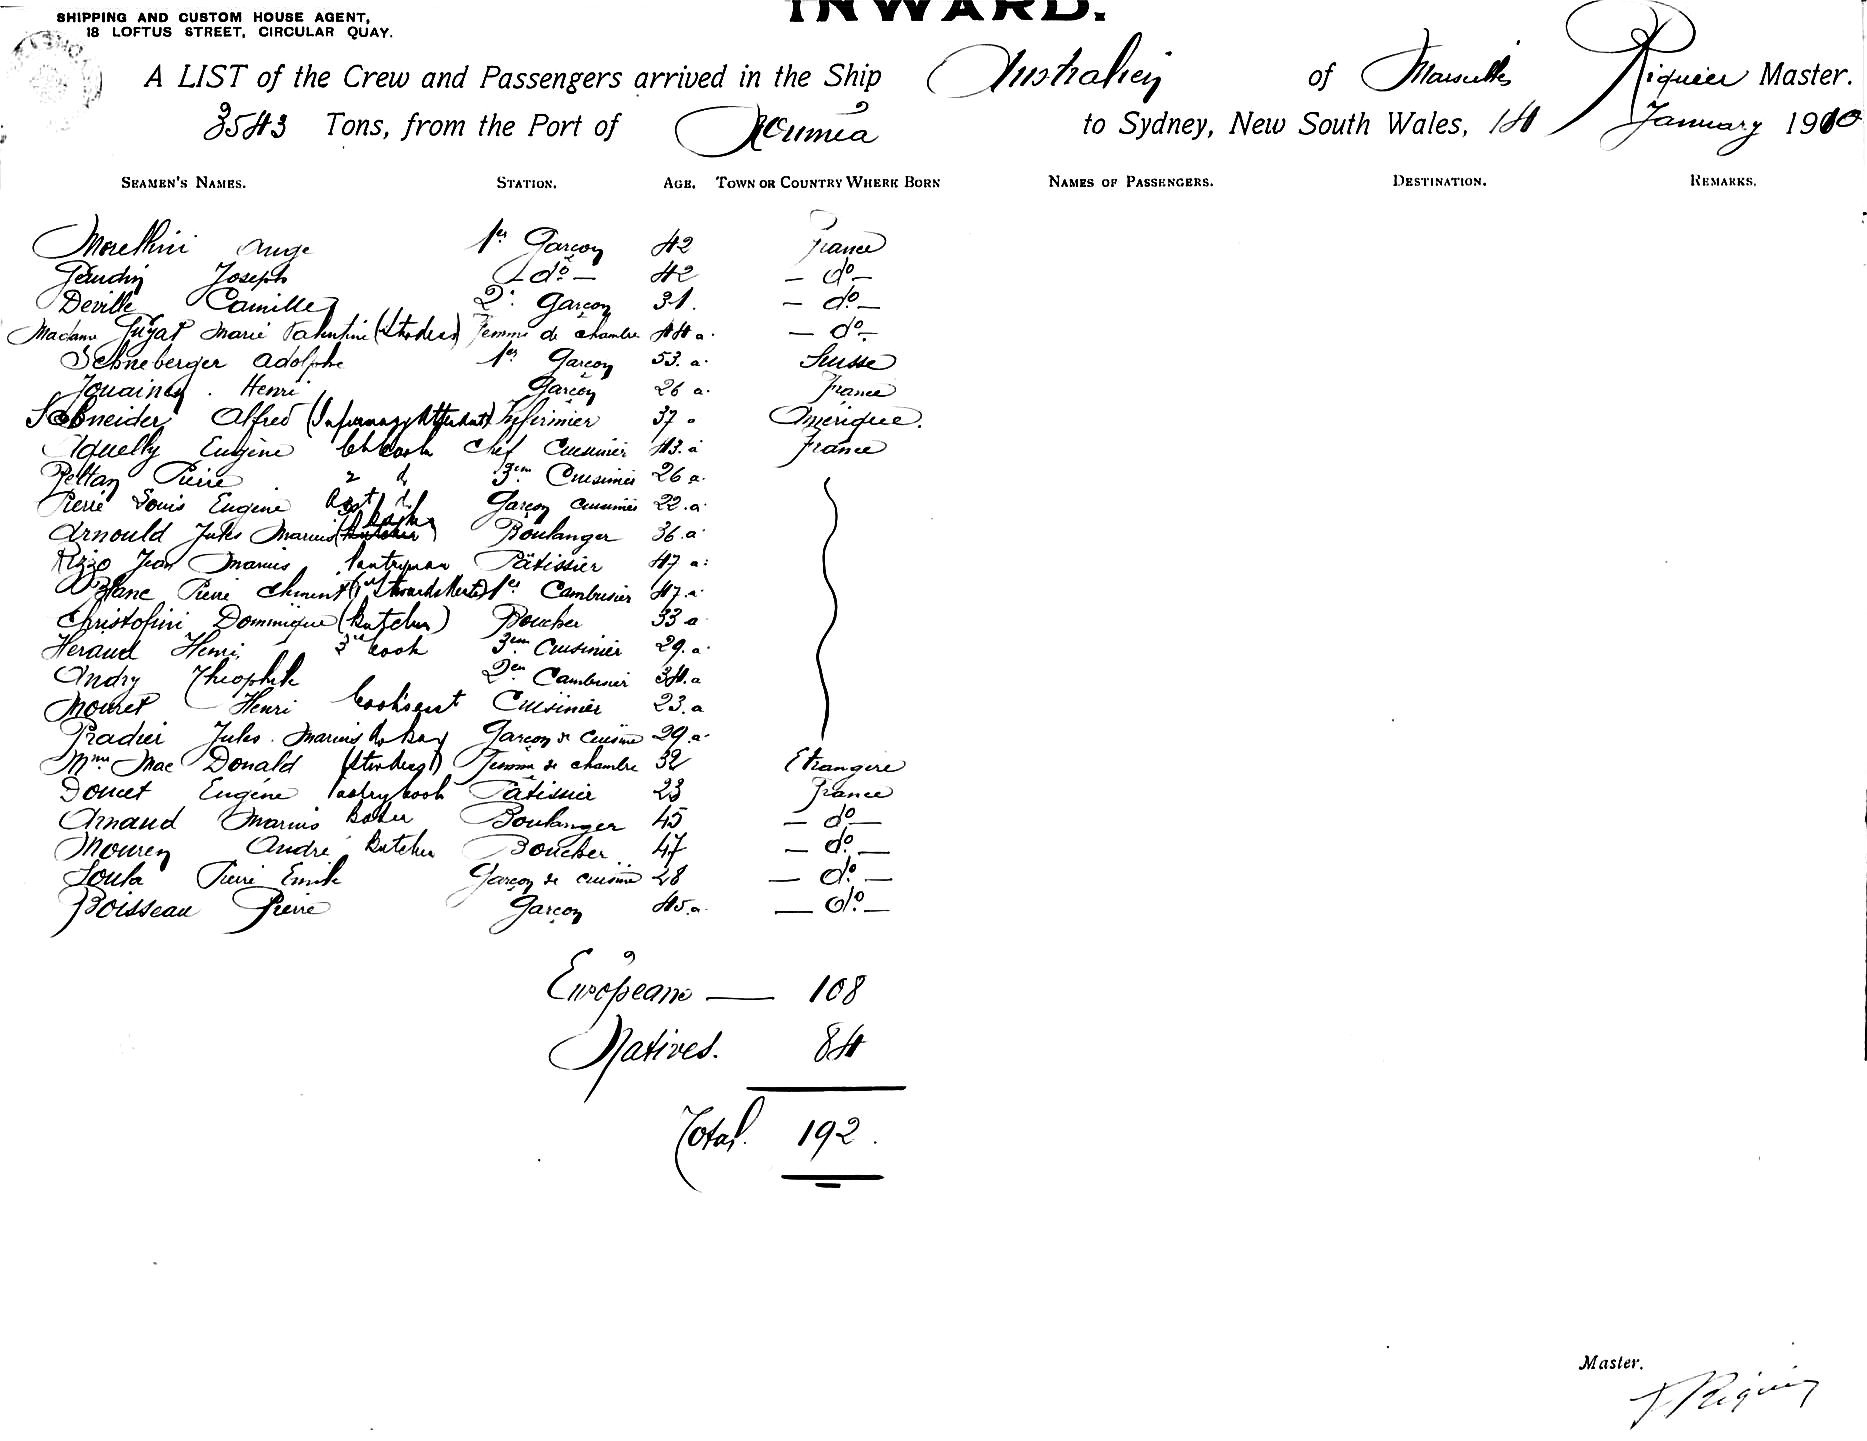 INWARD.
SHIPPING AND CUSTOM HOUSE AGENT,
18 LOFTUS STREET, CIRCULAR QUAY.
A LIST of the Crew and Passengers arrived in the Ship Australien of Marseilles Riquier Master.
3543 Tons, from the Port of Nouméa to Sydney, New South Wales, 14 January 1910
SEAMEN'S NAMES. STATION. AGE. TOWN OR COUNTRY WHERE BORN NAMES OF PASSENGERS. DESTINATION. REMARKS.
Morellini Ange 1er Garçon 42 France
Joseph - do - 42 - do -
Deville Camille 2e Garçon 31. - do -
Madame Marie Valentine (Stewardess) Femme de chambre 44 a. - do -
Schneberger Adolphe 1er Garçon 53. a. Suisse
Jouainey. Henri Garçon 26 a. France
Schneider Alfred (Infirmary Attendant) Infirmier 37 " Amérique.
Aquelly Eugène Ch Cook Chef Cuisinier 43. a France
Peltan Pierre 2 d 3em Cuisinier 26 a.
Pierre Louis Eugène Asst d Garçon cuisinier 22. a
Arnould Jules Marius (Baker) Boulanger 36. a
Rizzo Jean Marius Pantryman Pâtissier 47 a.
Blanc Pierre Clement 1er Cambusier 47. a
Christofini Dominique (Butcher) Boucher 33 a
Heraud Henri. 3rd Cook 3em Cuisinier 29. a
Andry Theophile 2em Cambusier 34. a
Mouret Henri Cook's asst Cuisinier 23. a
Pradier Jules. Marius do boy Garçon de cuisine 29. a
Mme Mac Donald (Stewardess) Femme de chambre 32 Etrangere
Doucet Eugène Pastrycook Pâtissier 23 France
Arnaud Marius Baker Boulanger 45 - do -
Mouren André Butcher Boucher 47 - do -
Soula Pierre Emile Garçon de cuisine 28 - do -
Boisseau Pierre Garçon 45. a. - do -
Européans — 108
Natives. 84
Total. 192.
Master.
Riquier